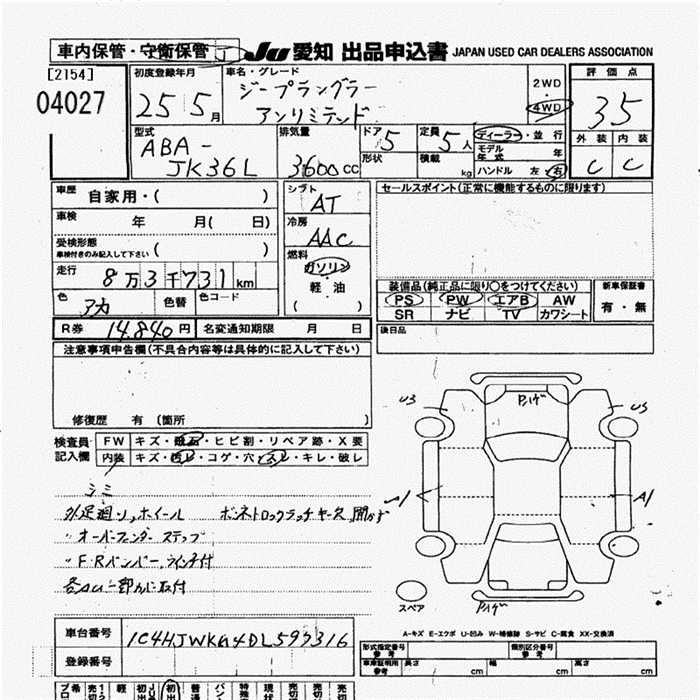 車内保管・守衛保管 JU 愛知 出品申込書 JAPAN USED CAR DEALERS ASSOCIATION
[2154]
04027
初度登録年月
25 5月
車名・グレード
ジープラングラー
アンリミテッド
2WD
・
4WD
評価点
3.5
外装 内装
C C
型式
ABA-
JK36L
排気量
3600cc
ドア 5
形状
定員 5人
積載 kg
ディーラー・並行
モデル年式 年
ハンドル 左・右
車歴 自家用・( )
車検 年 月( 日)
受検形態
車検付きのみ記入して下さい ( )
走行 8万3千731km
色 アカ 色替 色コード
シフト
AT
冷房
AAC
燃料
ガソリン
軽油
( )
セールスポイント(正常に機能するものに限ります)
装備品(純正品に限り〇をつけてください)
PS PW エアB AW
SR ナビ TV カワシート
新車保証書
有・無
後日品
R券 14,840円 名変通知期限 月 日
注意事項申告欄(不具合内容等は具体的に記入して下さい)
修復歴 有(箇所 )
検査員記入欄
FW キズ・飛石・ヒビ割・リペア跡・X要
内装 キズ・汚レ・コゲ・穴・スレ・キレ・破レ
シミ
外足廻り、ホイール ボンネットロックラッチ
〃オーバーフェンダー ステップ
〃F.Rバンパー、ウインチ付
U3
U3
A1
A1
スペア
A-キズ E-エクボ U-凹み W-補修跡 S-サビ C-腐食 XX-交換済
車台番号 1C4HJWKG4DL597316
登録番号
型式指定番号 参考
類別区分番号 参考
車庫証明用 参考 長さ cm 幅 cm 高さ cm